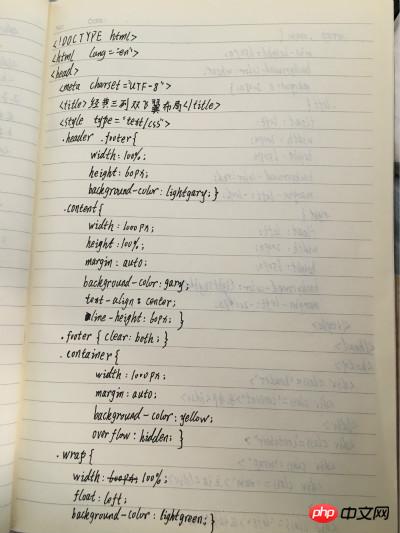 <!DOCTYPE html>
<html lang="en">
<head>
<meta charset="UTF-8">
<title>经典三列双飞翼布局</title>
<style type="text/css">
.header .footer{
width:100%;
height:60px;
background-color:lightgary;}
.content{
width:1000px;
height:100%;
margin:auto;
background-color:gary;
text-align:center;
line-height:60px;}
.footer{clear:both;}
.container{
width:1000px;
margin:auto;
background-color:yellow;
overflow:hidden;}
.wrap{
width:100%;
float:left;
background-color:lightgreen;}
php中文网